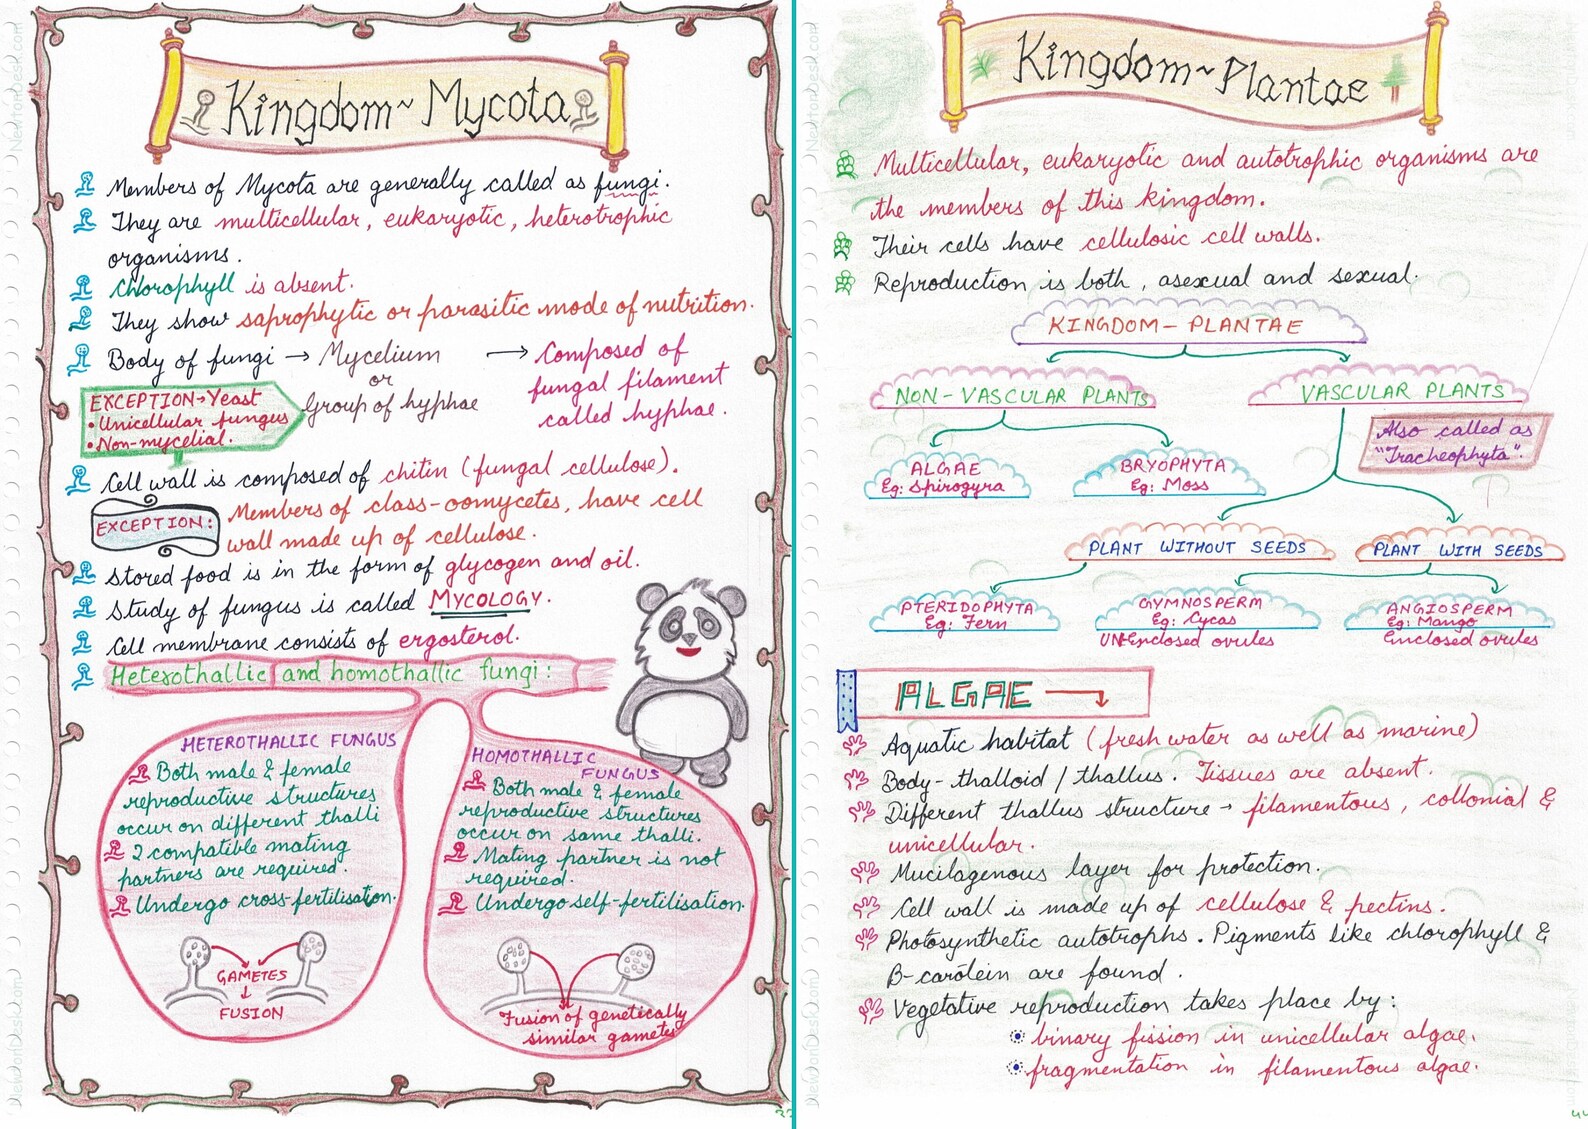 Kingdom~Mycota
Members of Mycota are generally called as fungi.
They are multicellular, eukaryotic, heterotrophic
organisms.
Chlorophyll is absent.
They show saprophytic or parasitic mode of nutrition.
Body of fungi → Mycelium → Composed of
or fungal filament
Group of hyphae called hyphae.
EXCEPTION→Yeast
• Unicellular fungus
• Non-mycelial.
Cell wall is composed of chitin (fungal cellulose).
EXCEPTION: Members of class-oomycetes, have cell
wall made up of cellulose.
Stored food is in the form of glycogen and oil.
Study of fungus is called MYCOLOGY.
Cell membrane consists of ergosterol.
Heterothallic and homothallic fungi:
HETEROTHALLIC FUNGUS
Both male & female
reproductive structures
occur on different thalli
2 compatible mating
partners are required.
Undergo cross-fertilisation.
GAMETES
↓
FUSION
HOMOTHALLIC
FUNGUS
Both male & female
reproductive structures
occur on same thalli.
Mating partner is not
required.
Undergo self-fertilisation.
Fusion of genetically
similar gametes
NewtonDesk.com
Kingdom~Plantae
Multicellular, eukaryotic and autotrophic organisms are
the members of this kingdom.
Their cells have cellulosic cell walls.
Reproduction is both, asexual and sexual.
KINGDOM-PLANTAE
NON-VASCULAR PLANTS
VASCULAR PLANTS
Also called as
"Tracheophyta".
ALGAE
Eg: Spirogyra
BRYOPHYTA
Eg: Moss
PLANT WITHOUT SEEDS
PLANT WITH SEEDS
PTERIDOPHYTA
Eg: Fern
GYMNOSPERM
Eg: Cycas
UN-Enclosed ovules
ANGIOSPERM
Eg: Mango
Enclosed ovules
ALGAE
Aquatic habitat (fresh water as well as marine)
Body-thalloid/thallus. Tissues are absent.
Different thallus structure → filamentous, collonial &
unicellular.
Mucilagenous layer for protection.
Cell wall is made up of cellulose & pectins.
Photosynthetic autotrophs. Pigments like chlorophyll &
B-carotein are found.
Vegetative reproduction takes place by:
binary fission in unicellular algae.
fragmentation in filamentous algae.
NewtonDesk.com